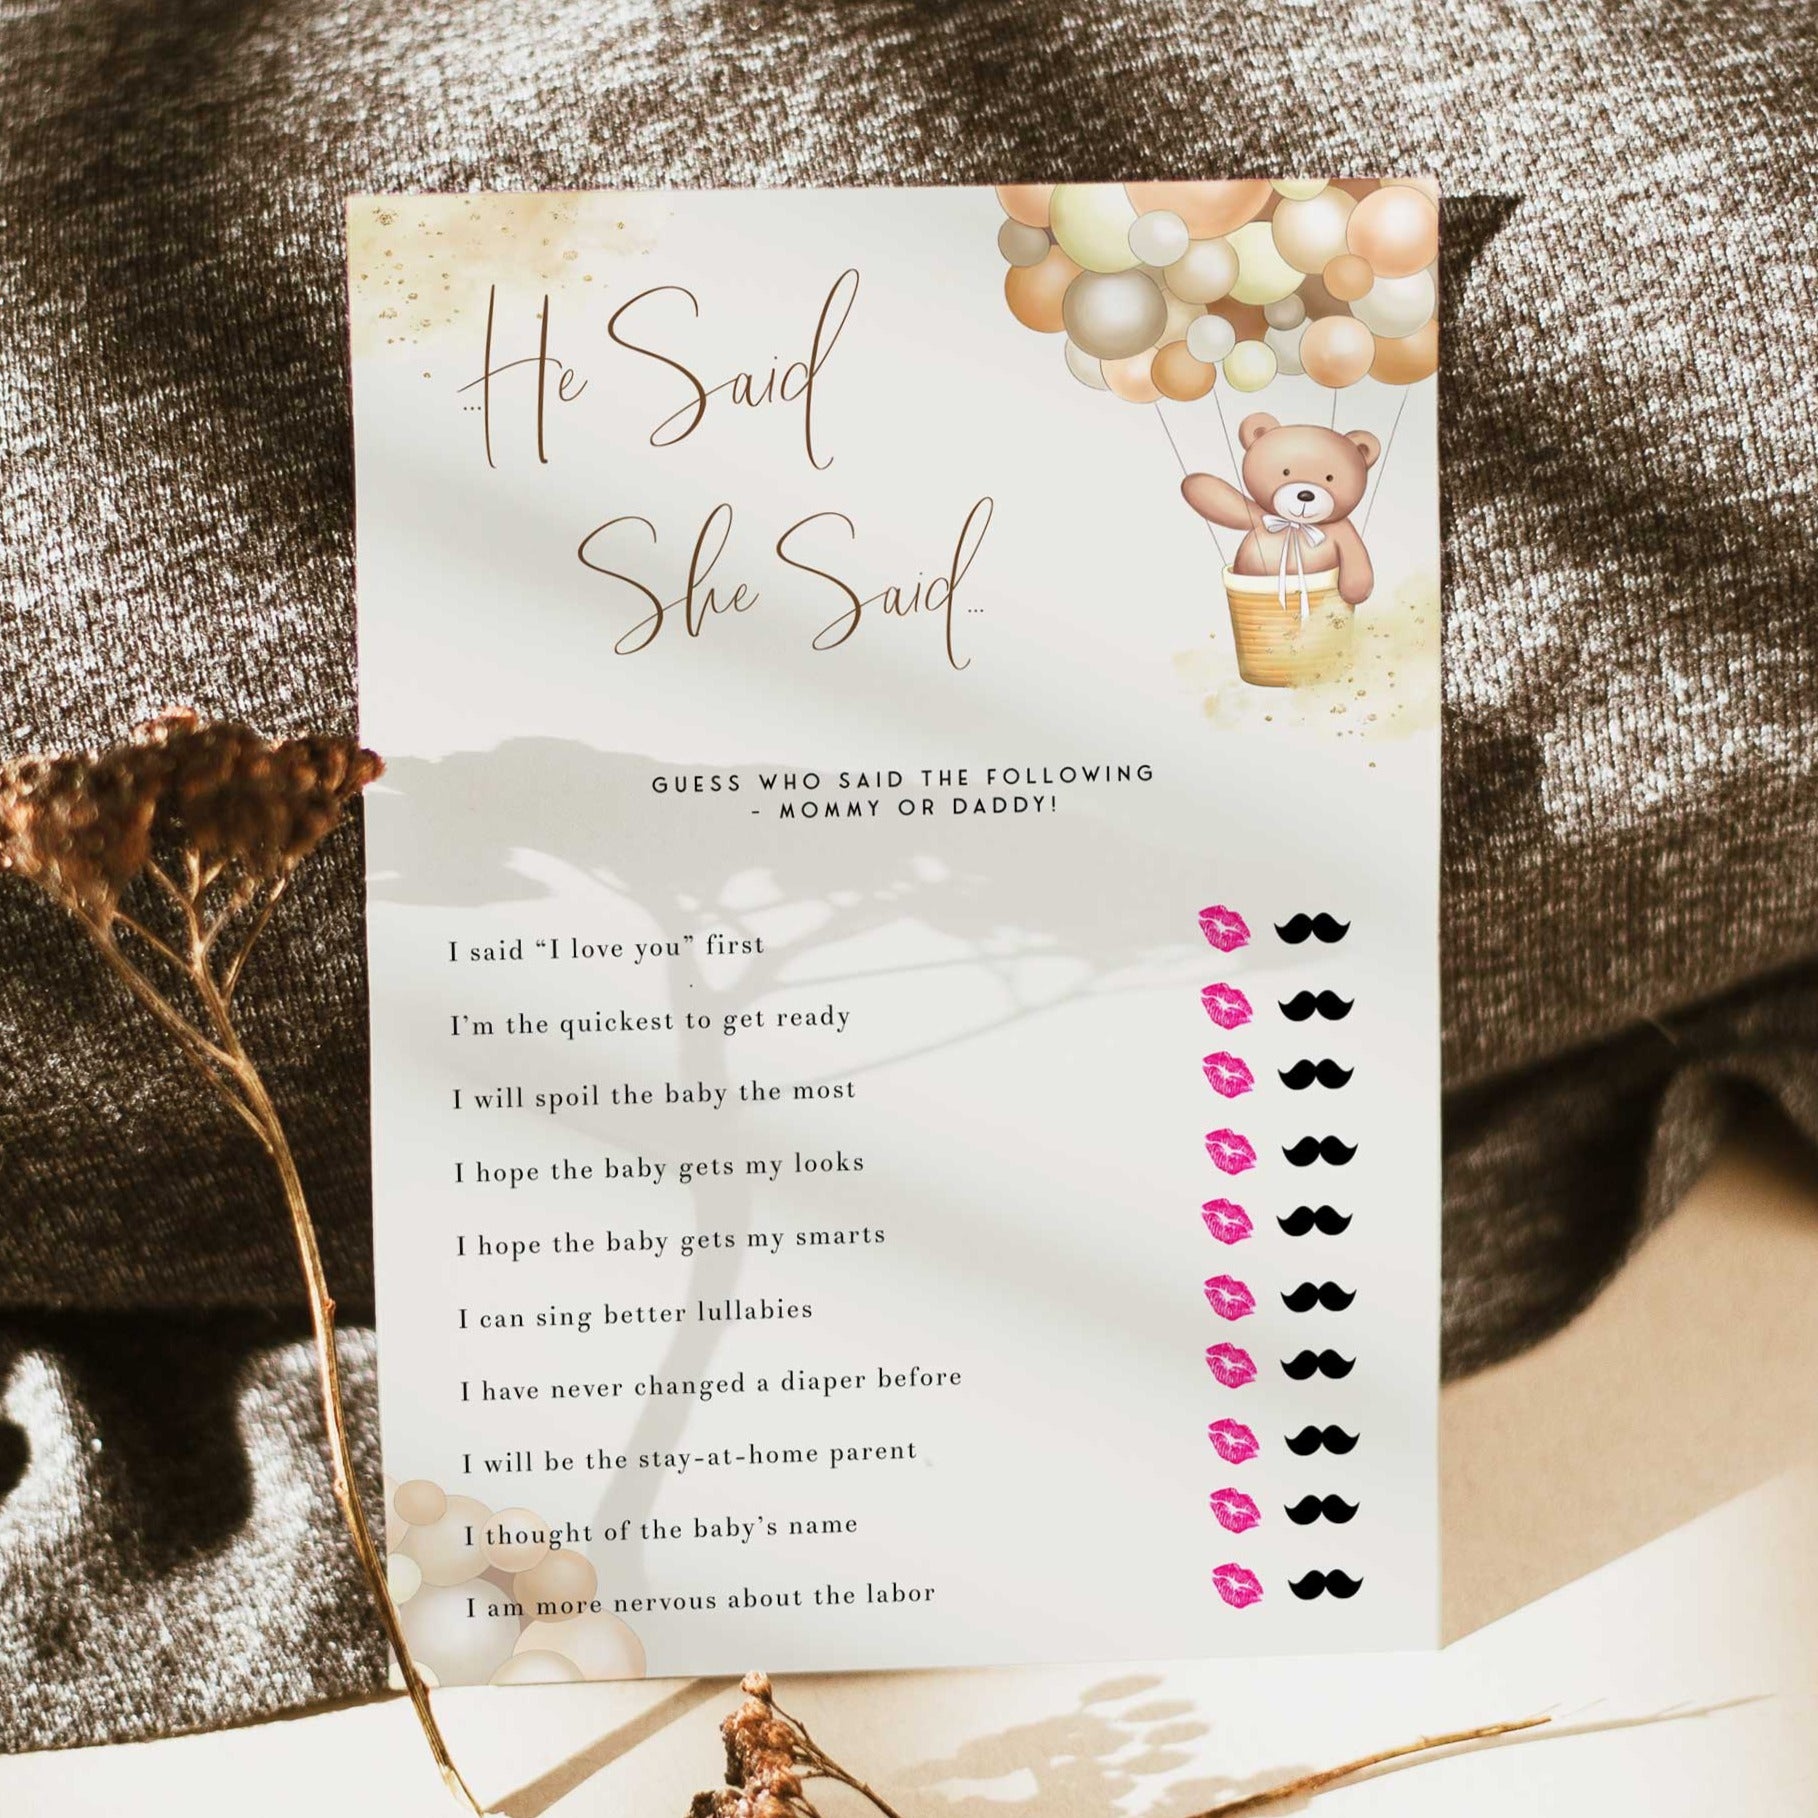 ...He Said
She Said...
GUESS WHO SAID THE FOLLOWING
- MOMMY OR DADDY!
I said “I love you” first
I’m the quickest to get ready
I will spoil the baby the most
I hope the baby gets my looks
I hope the baby gets my smarts
I can sing better lullabies
I have never changed a diaper before
I will be the stay-at-home parent
I thought of the baby’s name
I am more nervous about the labor